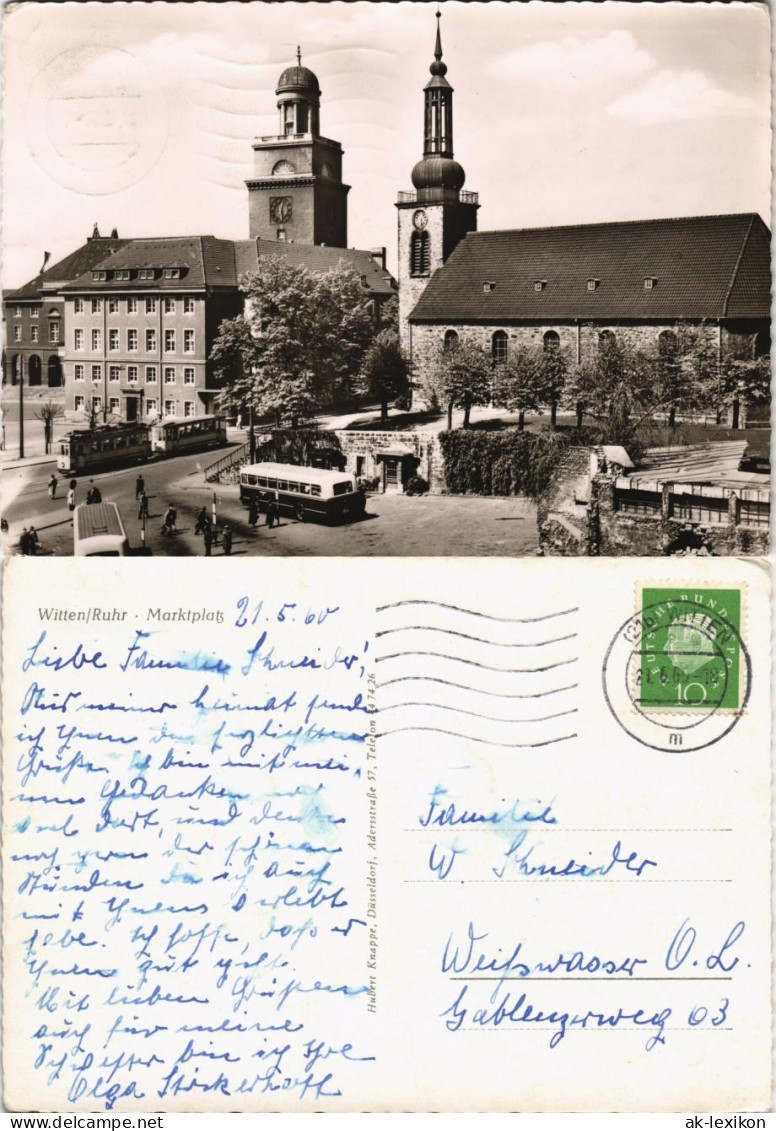 Witten/Ruhr · Marktplatz 21.5.60
Liebe Familie Schneider!
Aus meiner heimat sende
ich Ihnen die herzlichsten
Grüße. Ich bin mit mei,
nen Gedanken
viel dort, und denke
noch gern der schönen
Stunden die ich auch
mit Ihnen erlebt
habe. Ich hoffe, daß es
Ihnen gut geht.
Mit lieben Grüßen
auch für meine
Schwester bin ich Ihre
Olga Störkerhoff
Hubert Knappe, Düsseldorf, Adersstraße 57, Telefon 2 74 26
DEUTSCHE BUNDESPOST
10
(21b) WITTEN
m
Familie
W. Schneider
Weißwasser O. L.
Gablenzerweg 03
ak-lexikon